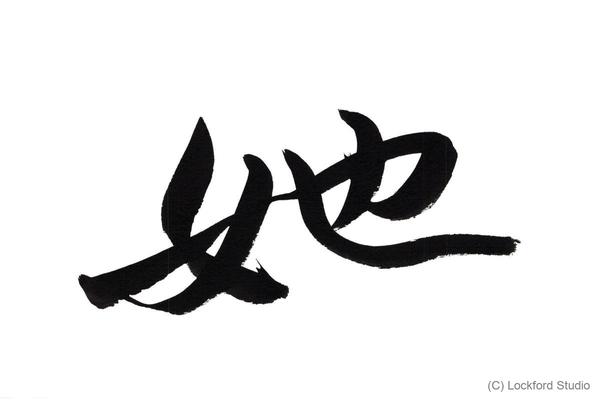 她
(C) Lockford Studio